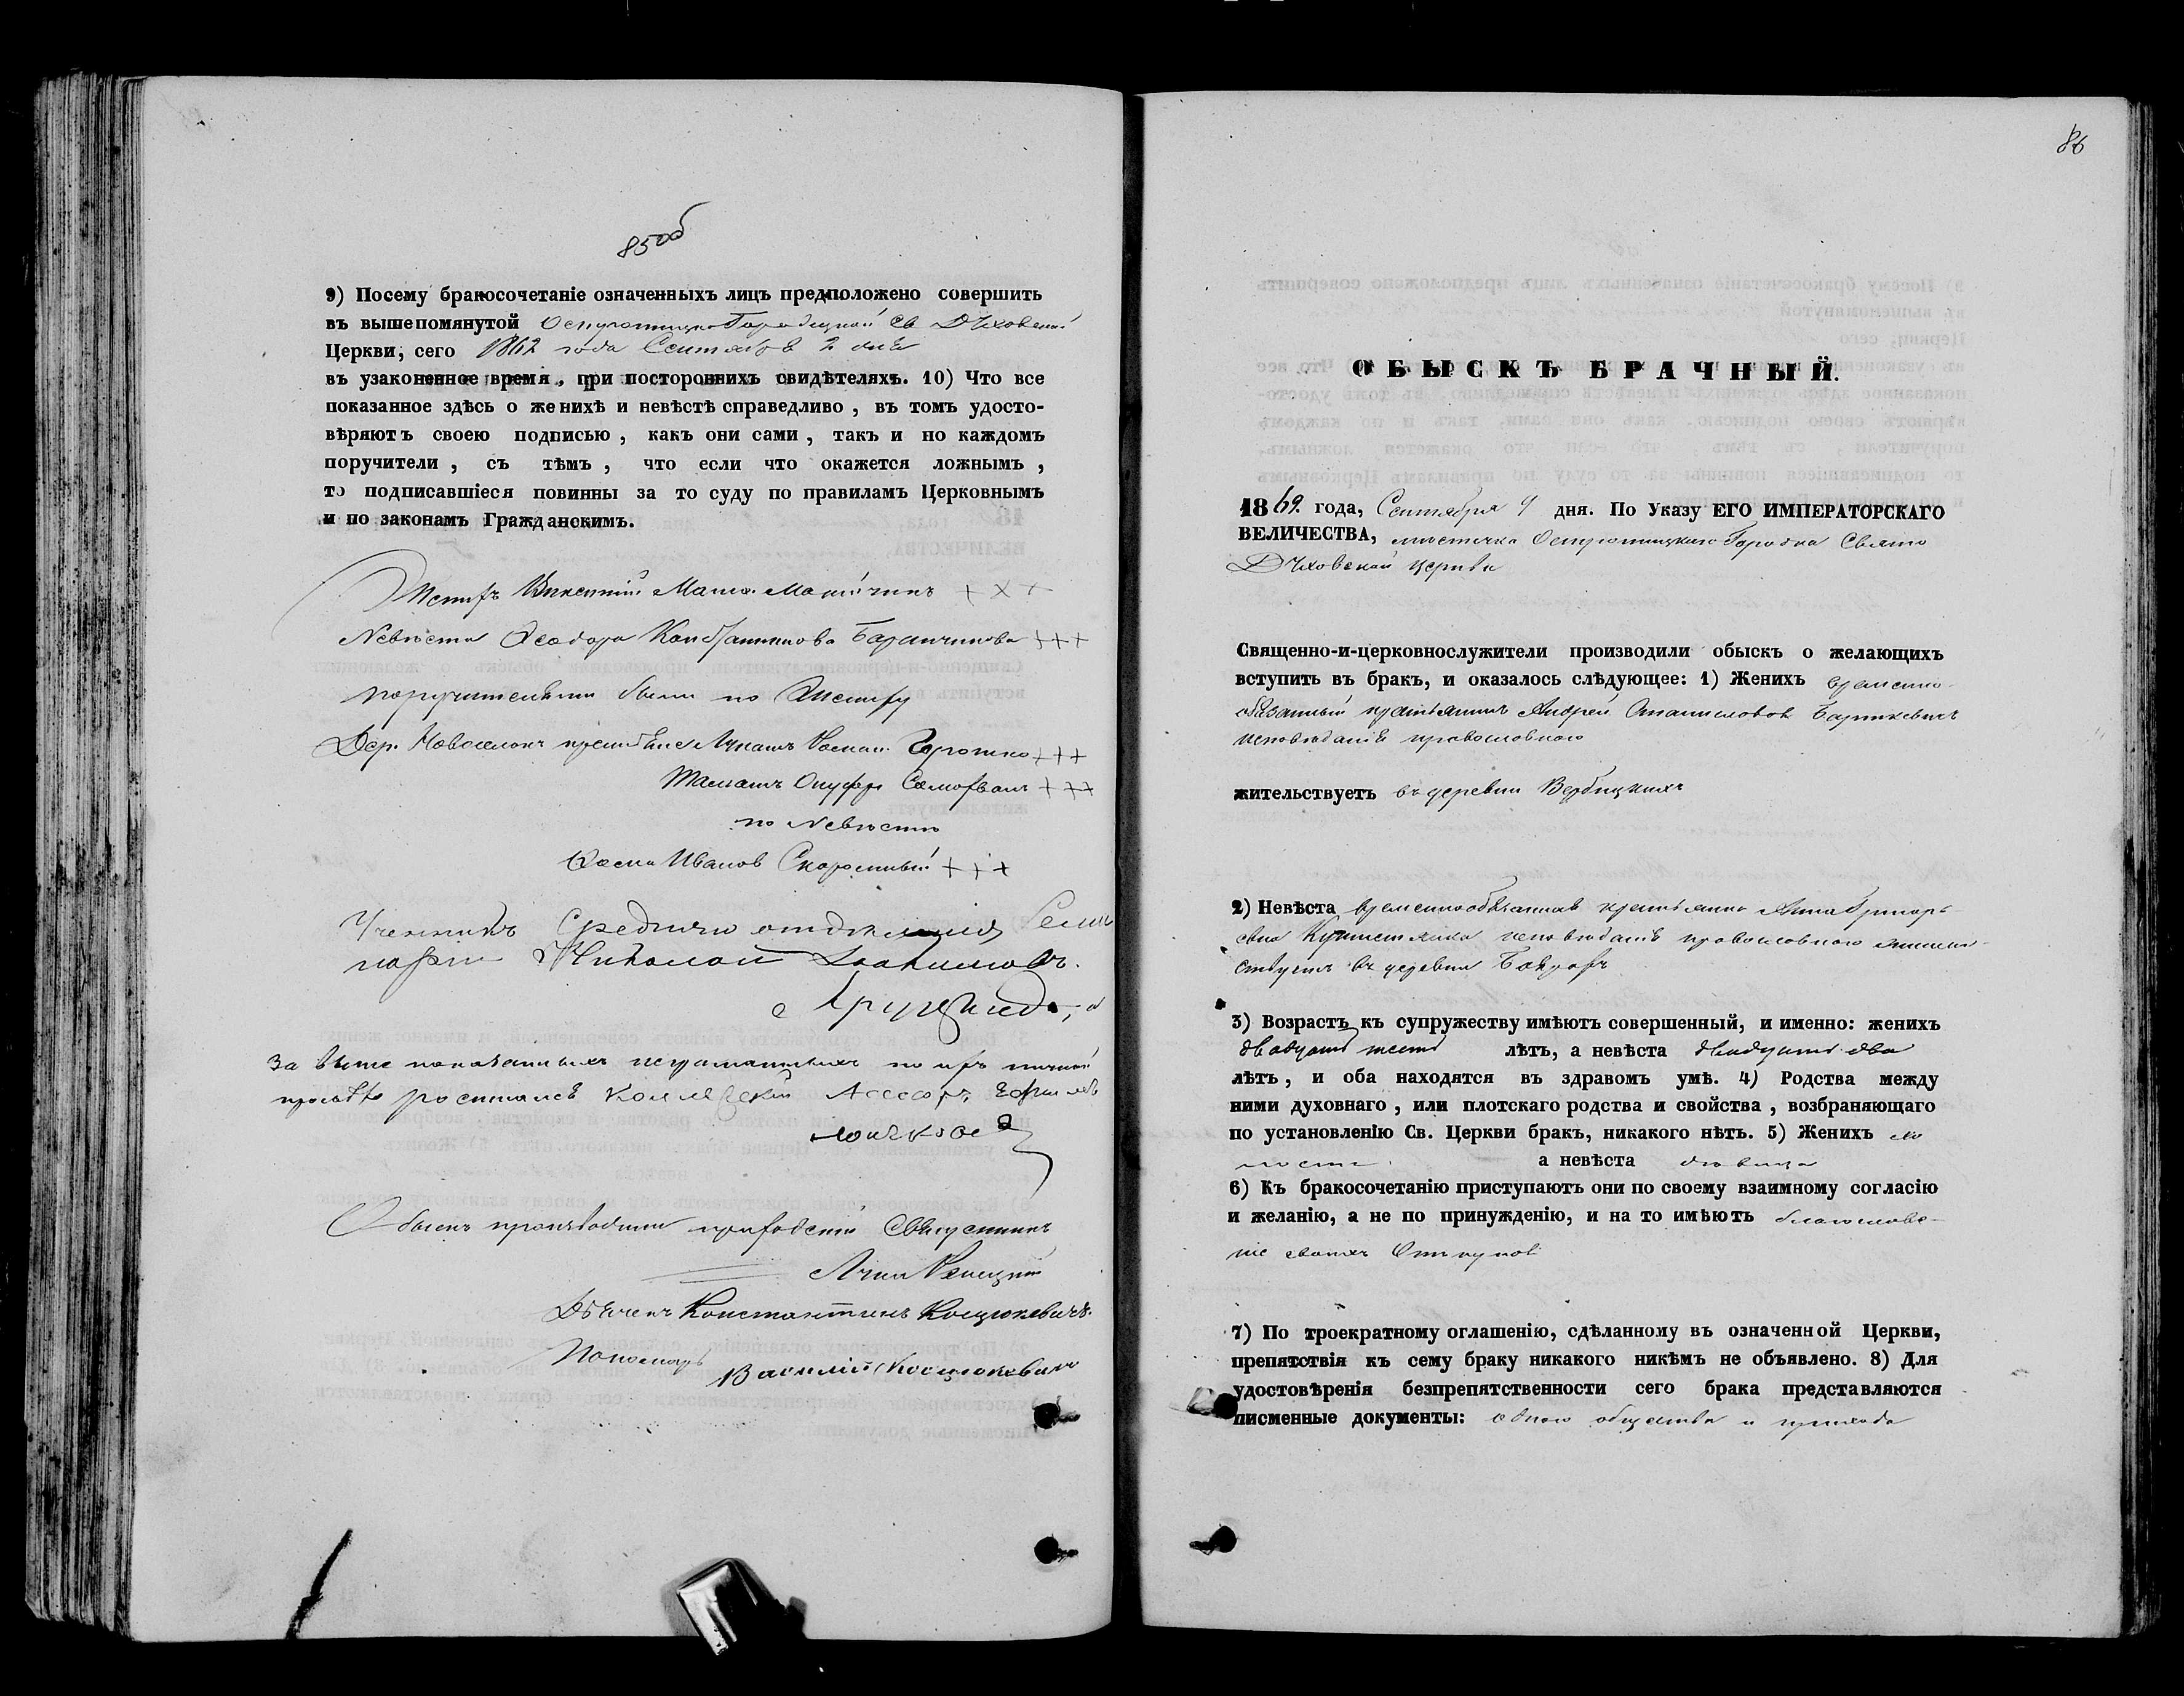 85об
9) Посему бракосочетаніе означенныхъ лицъ предположено совершить
въ вышепомянутой Острошицко Городецкой Св Духовской
Церкви, сего 1862 года Сентября 2 дня
въ узаконенное время, при постороннихъ свидѣтеляхъ. 10) Что все
показанное здѣсь о женихѣ и невѣстѣ справедливо, въ томъ удосто-
вѣряютъ своею подписью, какъ они сами, такъ и по каждомъ
поручители, съ тѣмъ, что если что окажется ложнымъ,
то подписавшіеся повинны за то суду по правиламъ Церковнымъ
и по законамъ Гражданскимъ.
Жених Викентий + × +
Невѣста Ѳеодора Константинова +++
поручителями были по Жениху
Дер. Новоселокъ +++
+++
по Невѣсте
Иванов +++
Ученикъ Средняго отдѣленія Семи
наріи Николай
За выше показанныхъ неграмотныхъ по их личной
просьбѣ росписался Коллежскій Ассесоръ
Обыскъ производили приходскій Священникъ
Дьячекъ Константинъ Косцюкевичъ.
Пономарь
Василій Косцюкевичъ
86
ОБЫСКЪ БРАЧНЫЙ.
1862 года, Сентября 9 дня. По Указу ЕГО ИМПЕРАТОРСКАГО
ВЕЛИЧЕСТВА, мѣстечка Острошицкаго Городка Свято
Духовской церкви
Священно-и-церковнослужители производили обыскъ о желающихъ
вступить въ бракъ, и оказалось слѣдующее: 1) Женихъ временно
обязанный крестьянинъ Андрей Станиславов
исповѣданія православнаго
жительствуетъ въ деревни Вербицкихъ
2) Невѣста временнообязанная крестьянка Анна Григорь
ева исповѣданія православнаго жител
ствуетъ въ деревни
3) Возрастъ къ супружеству имѣютъ совершенный, и именно: женихъ
двадцать шесть лѣтъ, а невѣста двадцать два
лѣтъ, и оба находятся въ здравомъ умѣ. 4) Родства между
ними духовнаго, или плотскаго родства и свойства, возбраняющаго
по установленію Св. Церкви бракъ, никакого нѣтъ. 5) Женихъ хо
лостъ а невѣста дѣвица
6) Къ бракосочетанію приступаютъ они по своему взаимному согласію
и желанію, а не по принужденію, и на то имѣютъ благослове-
ніе своихъ
7) По троекратному оглашенію, сдѣланному въ означенной Церкви,
препятствія къ сему браку никакого никѣмъ не объявлено. 8) Для
удостовѣренія безпрепятственности сего брака представляются
писменные документы: одного общества и прихода